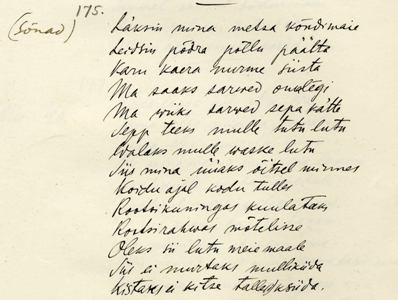 175.
(Sõnad)
Läksin mina metsa kõndimaie
Leidsin põdra põllu päälta
Karu kaera nurme siista
Ma saaks sarwed omategi
Ma wiiks sarwed sepa kätte
Sepp teeks mulle lutu lutu
Walaks mulle waske lutu
Siis mina üiaks õitsel minnes
Koidu ajal kodu tulles
Rootsikuningas kuulataks
Rootsirahwas mõtelisse
Oleks sii lutu meie maale
Siis ei murtaks mullikiida
Kistaks ei kitse tallekesida.